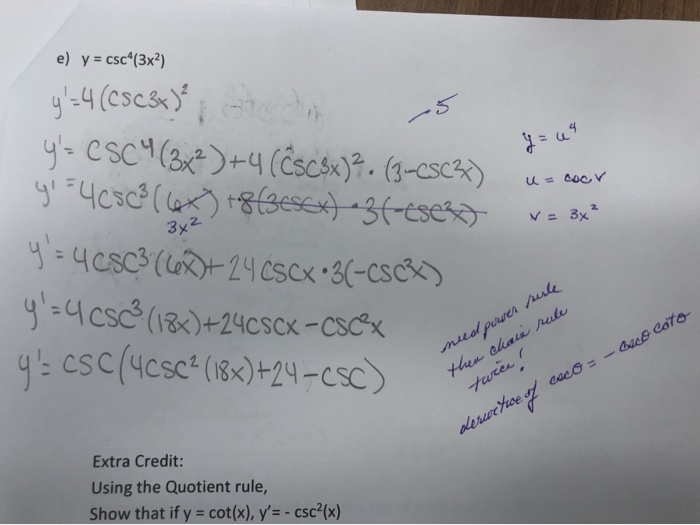 e) y = csc⁴(3x²)
y'=4(csc3x)²
-.5
y'= csc⁴(3x²)+4(csc3x)²·(3-csc²x)
y = u⁴
u = csc v
v = 3x²
y'=4csc³(6x)+8(3cscx)·3(-csc²x)
3x²
y'=4csc³(6x)+24cscx·3(-csc²x)
y'=4csc³(18x)+24cscx-csc²x
y'= csc(4csc²(18x)+24-csc)
need power rule
then chain rule
twice!
derivative of cscθ = -cscθcotθ
Extra Credit:
Using the Quotient rule,
Show that if y = cot(x), y'= - csc²(x)